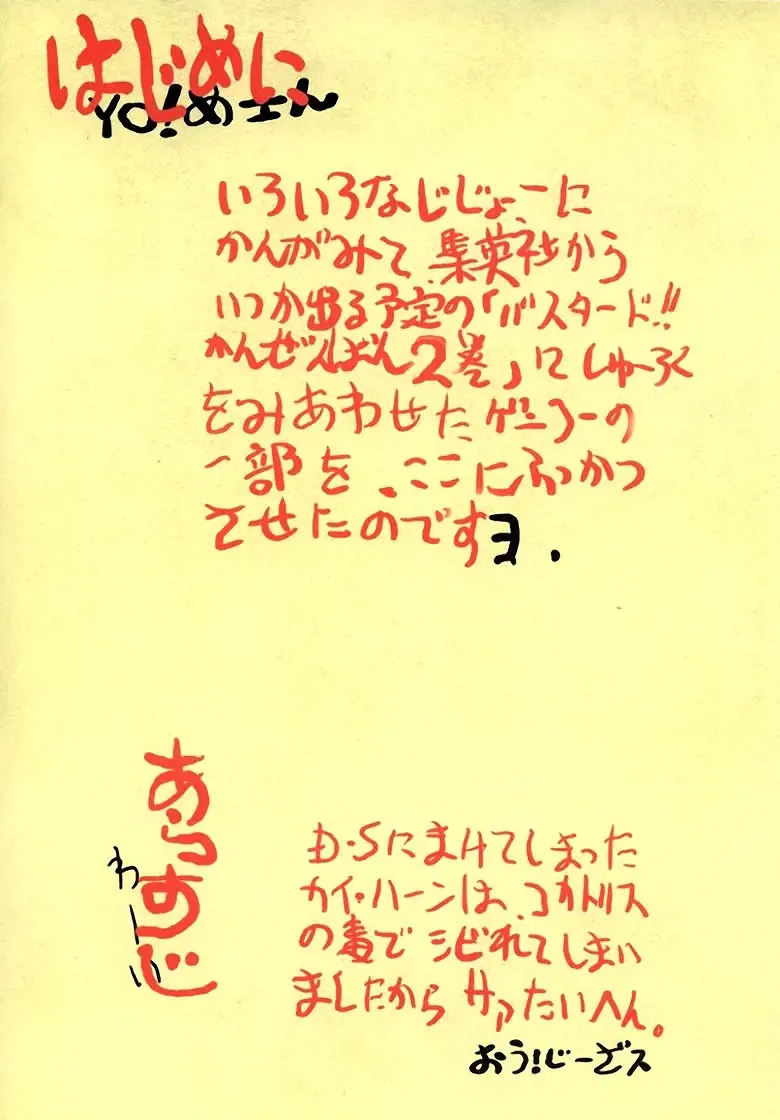 はじめに
YO!めーん
いろいろなじじょーに
かんがみて、集英社から
いつか出る予定の「バスタード!!
かんぜんばん2巻」にしゅーろく
をみあわせたゲンコーの
一部を、ここにふっかつ
させたのですヨ.
あらすじ
わーい
D・Sにまけてしまった
カイ・ハーンは、コカトリス
の毒でシビれてしまい
ましたからサァたいへん。
おう!じーざス